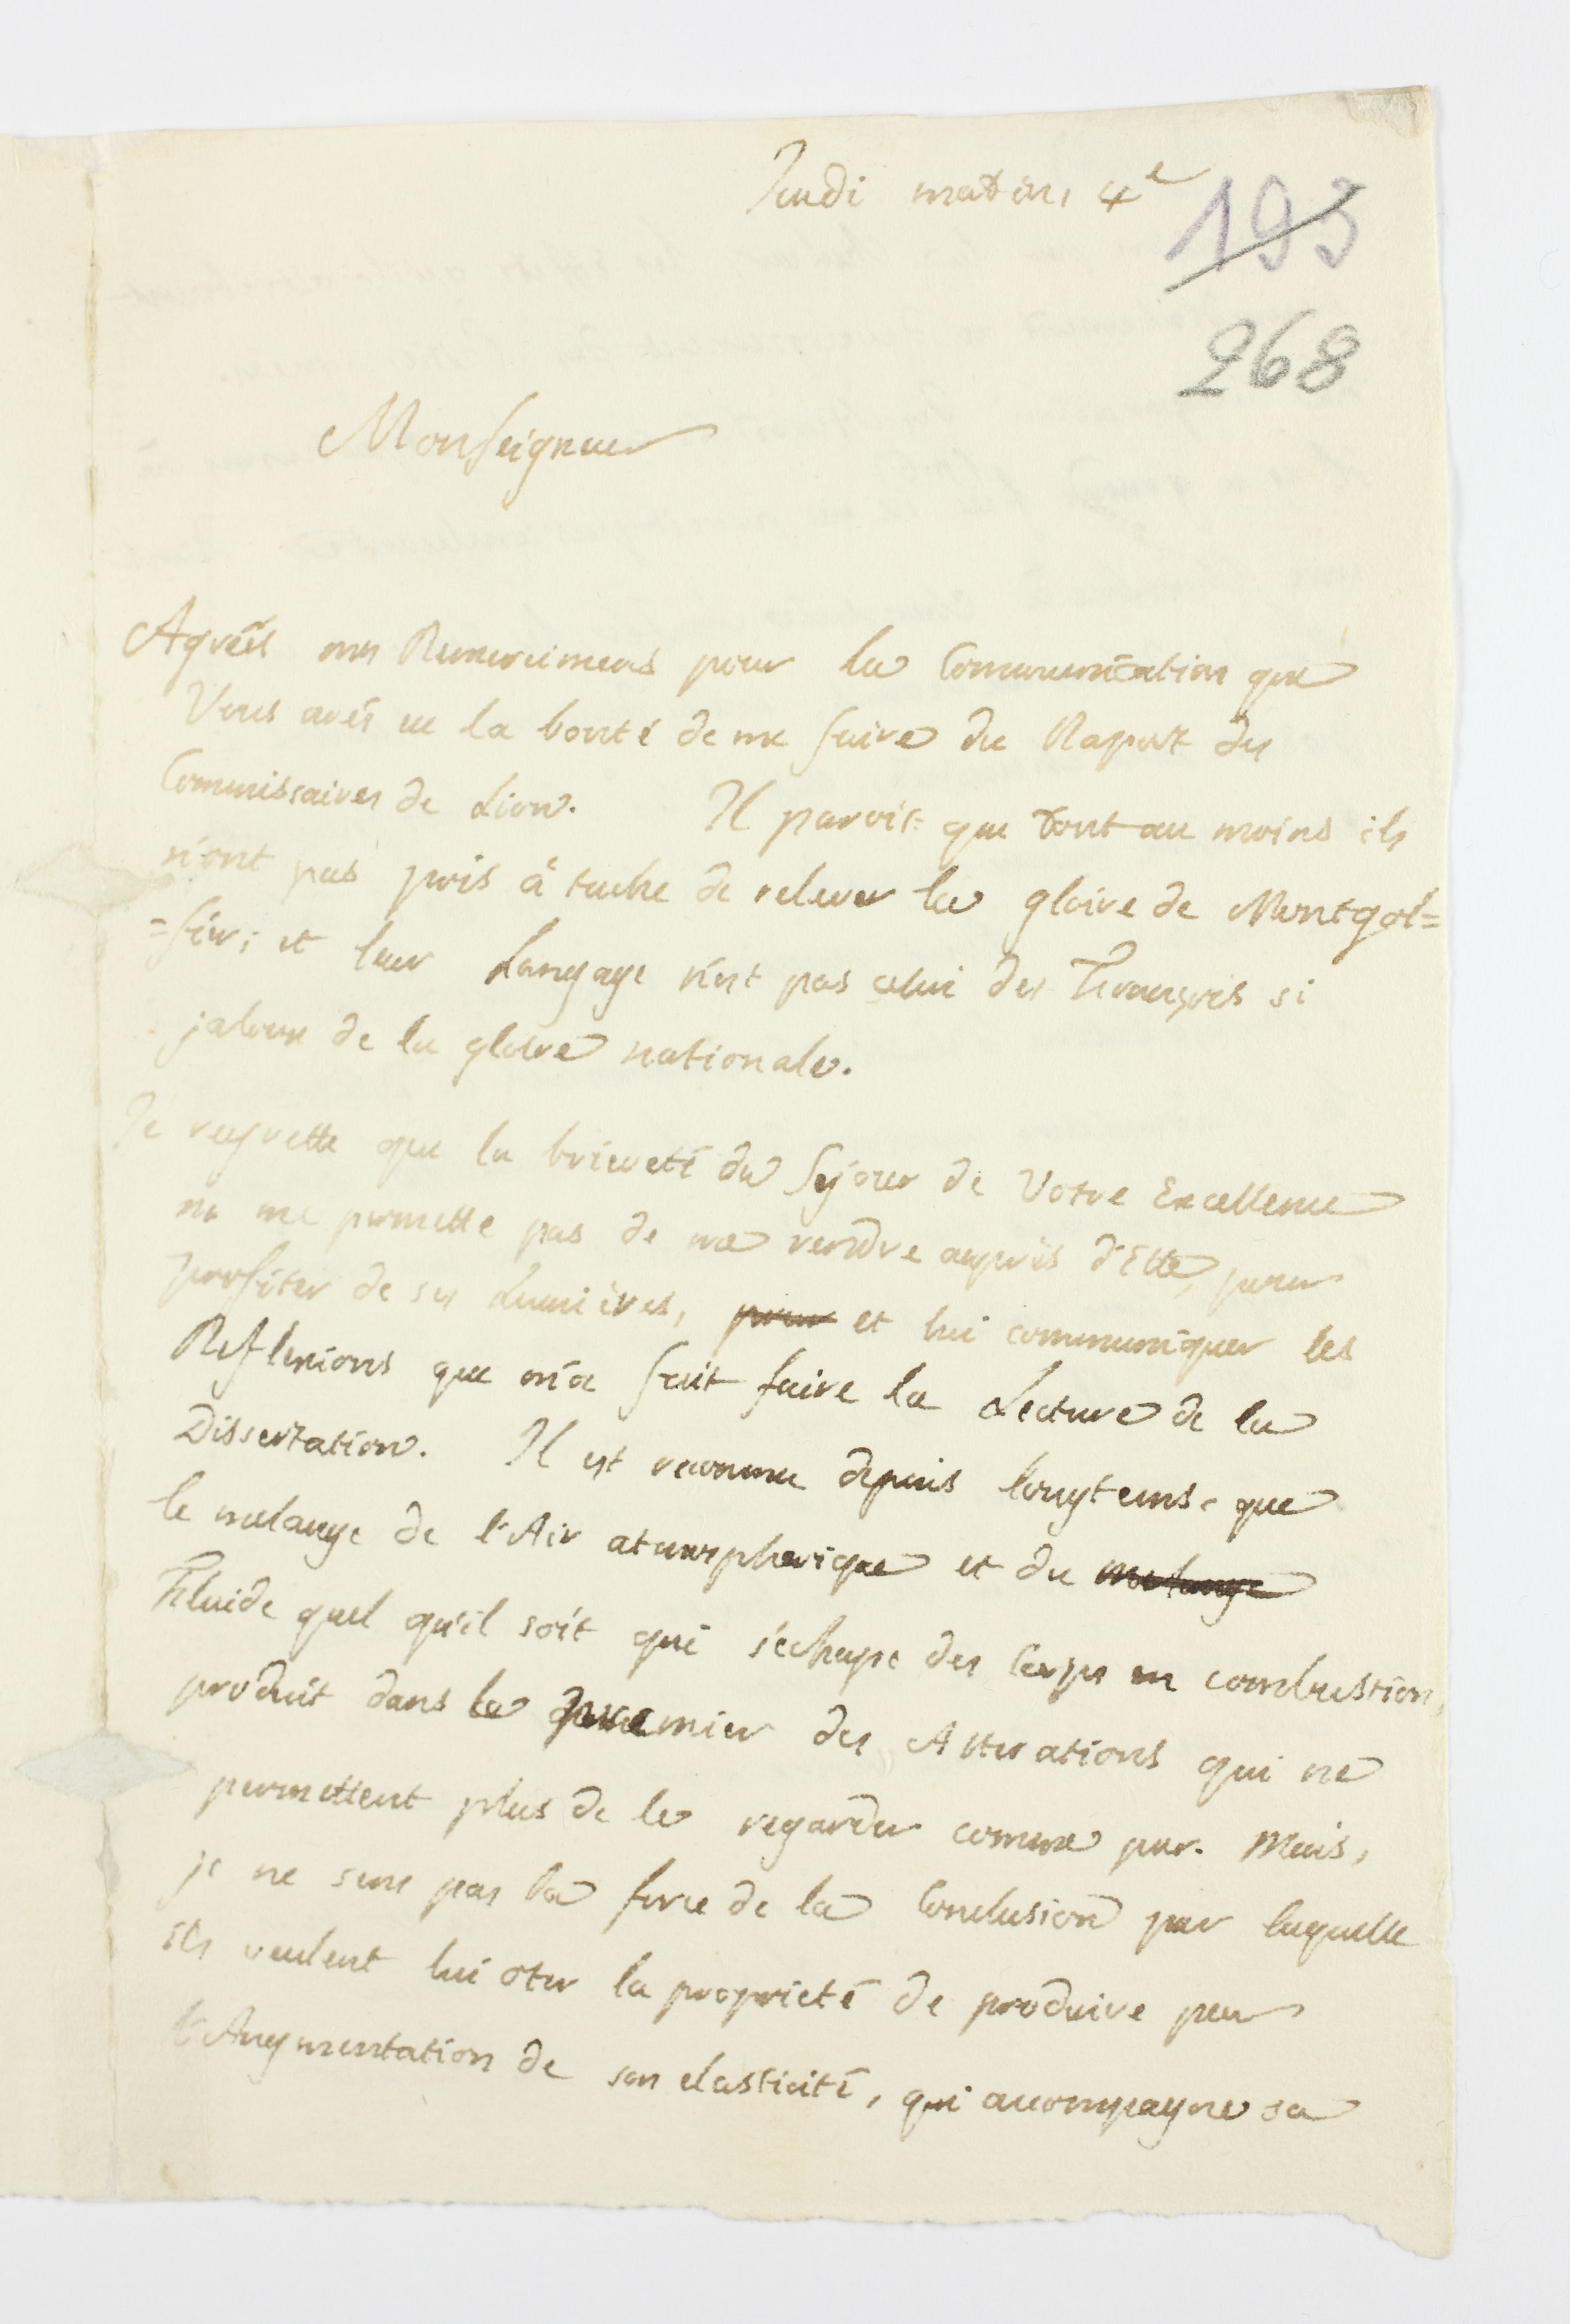 Jeudi matin, 4e
193
268
Monseigneur
Agreés mes Remercimens pour la Communication que
Vous avés eu la bonté de me faire du Raport des
Commissaires de Lion. Il paroit que tout au moins ils
n'ont pas pris à tache de relever la gloire de Montgol=
=fier; et leur Langage n'est pas celui des François si
jaloux de la gloire nationale.
Je regrette que la brieveté du Sejour de Votre Excellence
ne me permette pas de me rendre auprès d'Elle, pour
profiter de ses Lumières, pour et lui communiquer les
Reflexions que m'a fait faire la Lecture de la
Dissertation. Il est reconnu depuis longtems, que
le melange de l'Air atmospherique et du melange
Fluide quel qu'il soit qui s'echape des Corps en combustion,
produit dans le premier des Alterations qui ne
permettent plus de le regarder comme pur. Mais,
je ne sens pas la force de la Conclusion par laquelle
ils veulent lui oter la proprieté de produire par
l'Augmentation de son elasticité, qui accompagne sa